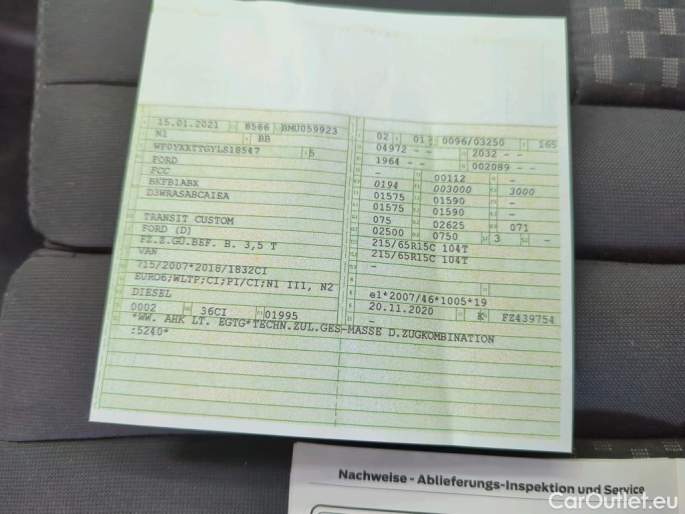 15.01.2021 8566 BMU059923
N1 BB
WF0YXXTTGYLS18547 5
FORD
FCC
BKFB1ABX
D3WRASABCAIEA
TRANSIT CUSTOM
FORD (D)
FZ.Z.GÜ.BEF. B. 3,5 T
VAN
715/2007*2018/1832CI
EURO6;WLTP;CI;PI/CI;N1 III, N2
DIESEL
0002 36CI 01995
02 01 0096/03250 165
04972 - - 2032 - -
1964 - - 002089 - -
- 00112 -
0194 003000 3000
01575 01590 -
01575 01590 -
075 02625 071
02500 0750 3 -
215/65R15C 104T
215/65R15C 104T
-
e1*2007/46*1005*19
20.11.2020 K FZ439754
-
*WW. AHK LT. EGTG*TECHN.ZUL.GES-MASSE D.ZUGKOMBINATION
:5240*
Nachweise - Ablieferungs-Inspektion und Service
CarOutlet.eu